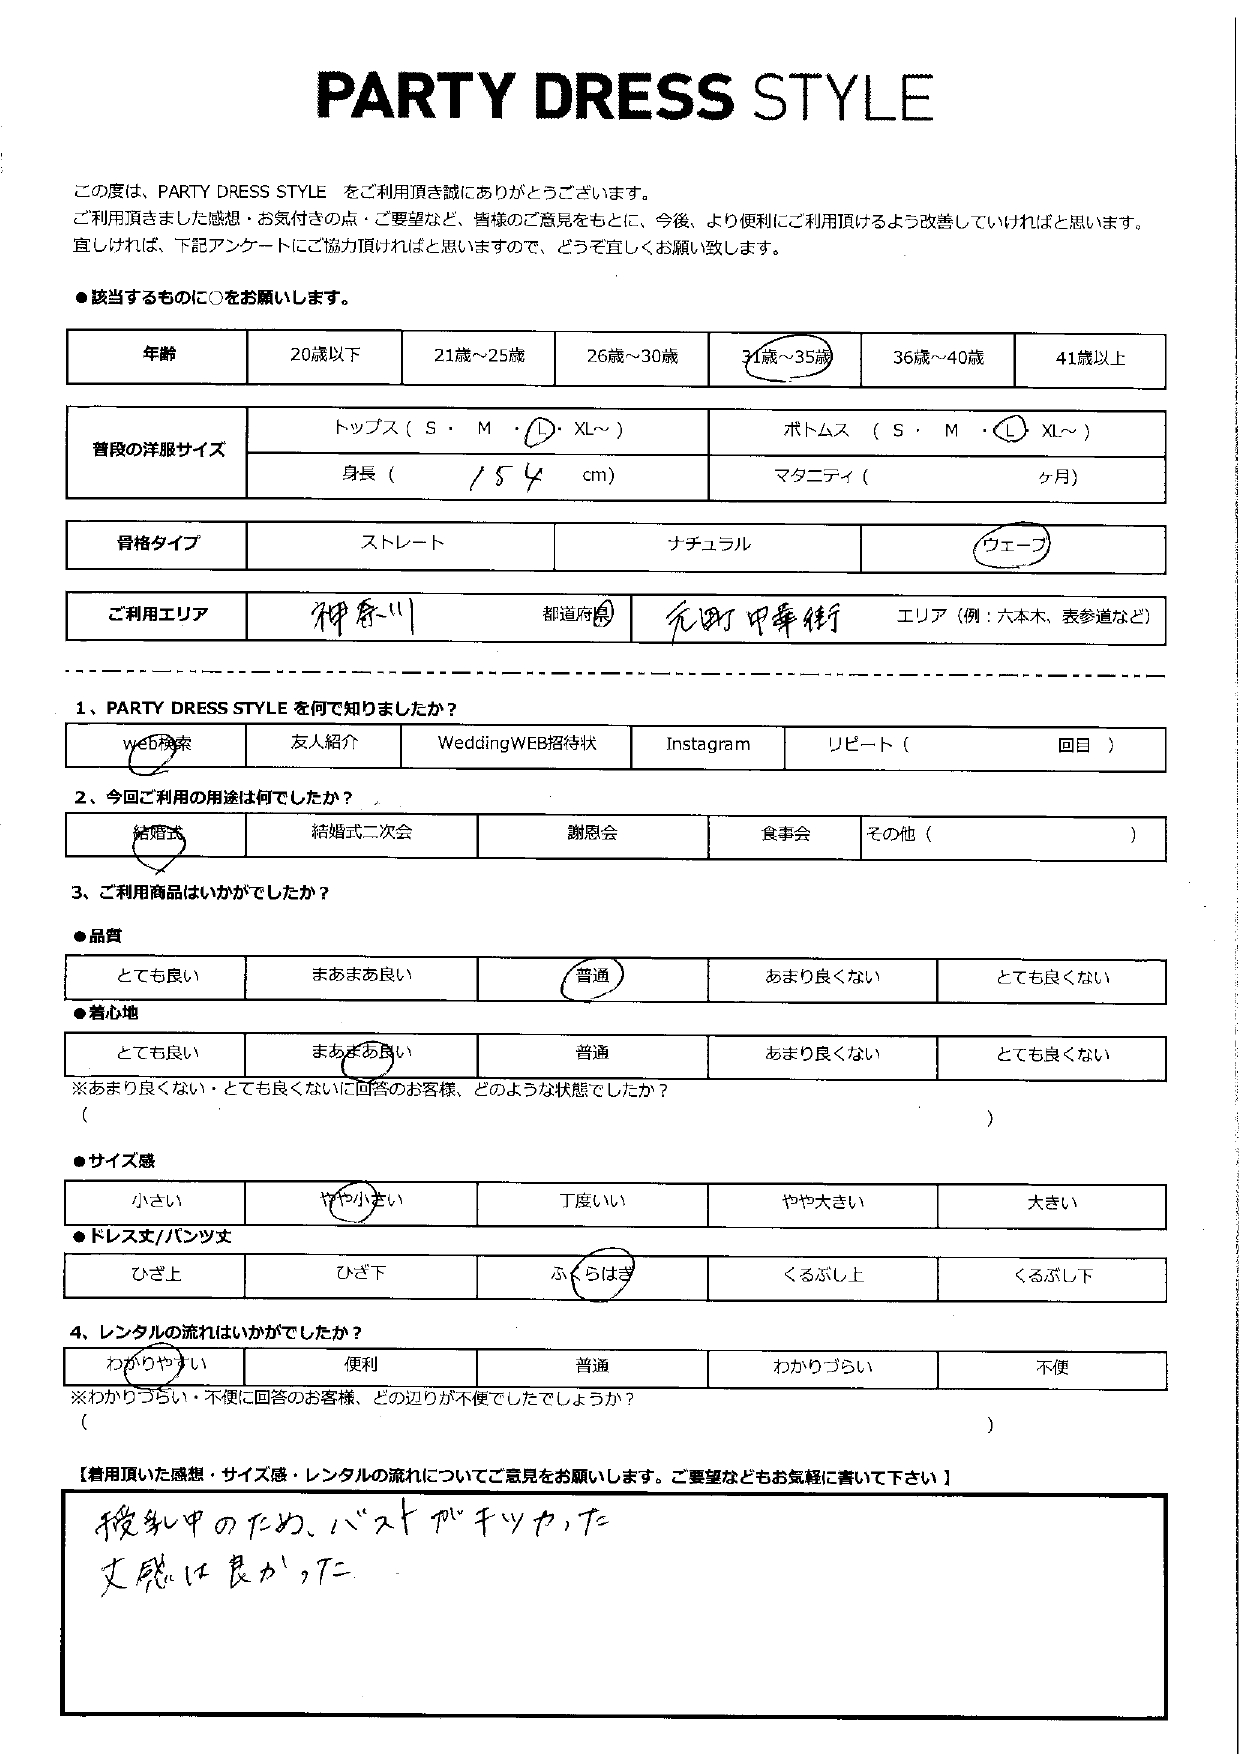 PARTY DRESS STYLE
この度は、PARTY DRESS STYLE をご利用頂き誠にありがとうございます。
ご利用頂きました感想・お気付きの点・ご要望など、皆様のご意見をもとに、今後、より便利にご利用頂けるよう改善していければと思います。
宜しければ、下記アンケートにご協力頂ければと思いますので、どうぞ宜しくお願い致します。
●該当するものに○をお願いします。
年齢 20歳以下 21歳～25歳 26歳～30歳 31歳～35歳 36歳～40歳 41歳以上
普段の洋服サイズ トップス ( S ・ M ・ L ・ XL～ ) ボトムス ( S ・ M ・ L ・ XL～ )
身長 ( 154 cm) マタニティ ( ヶ月)
骨格タイプ ストレート ナチュラル ウェーブ
ご利用エリア 神奈川 都道府県 元町中華街 エリア（例：六本木、表参道など）
1、PARTY DRESS STYLE を何で知りましたか？
web検索 友人紹介 WeddingWEB招待状 Instagram リピート ( 回目 )
2、今回ご利用の用途は何でしたか？
結婚式 結婚式二次会 謝恩会 食事会 その他 ( )
3、ご利用商品はいかがでしたか？
●品質
とても良い まあまあ良い 普通 あまり良くない とても良くない
●着心地
とても良い まあまあ良い 普通 あまり良くない とても良くない
※あまり良くない・とても良くないに回答のお客様、どのような状態でしたか？
( )
●サイズ感
小さい やや小さい 丁度いい やや大きい 大きい
●ドレス丈/パンツ丈
ひざ上 ひざ下 ふくらはぎ くるぶし上 くるぶし下
4、レンタルの流れはいかがでしたか？
わかりやすい 便利 普通 わかりづらい 不便
※わかりづらい・不便に回答のお客様、どの辺りが不便でしたでしょうか？
( )
【着用頂いた感想・サイズ感・レンタルの流れについてご意見をお願いします。ご要望などもお気軽に書いて下さい 】
授乳中のため、バストがキツかった
丈感は良かった